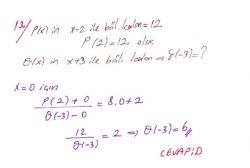 13. P(x) in x-2 ile böl. kalan = 12
P(2) = 12 olur.
Q(x) in x+3 ile böl. kalan ⇒ Q(-3) = ?
x=0 için
P(2)+0 / Q(-3)-0 = 8.0+2
12 / Q(-3) = 2 ⇒ Q(-3) = 6
CEVAP: D